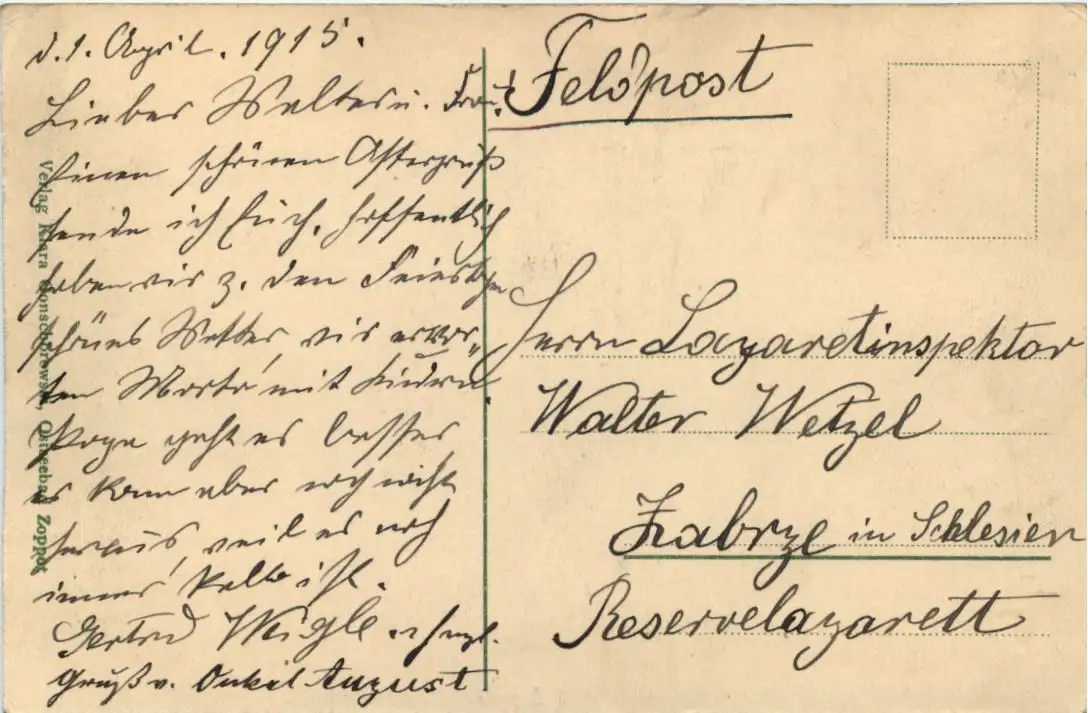 d. 1. April. 1915.
Lieber Walter u. Frau!
Einen schönen Ostergruß
sende ich Euch, hoffentlich
haben wir z. den Feiertagen
schönes Wetter, wir erwar„
ten Martr mit Kindern.
Papa geht es besser
er kann aber noch nicht
heraus, weil es noch
immer kalt ist.
Gertrud Weigle.
Gruß v. Onkel August
Feldpost
Herrn Lazaretinspektor
Walter Wetzel
Zabrze in Schlesien
Reservelazarett
Verlag Klara Gonschorowski, Ostseebad Zoppot